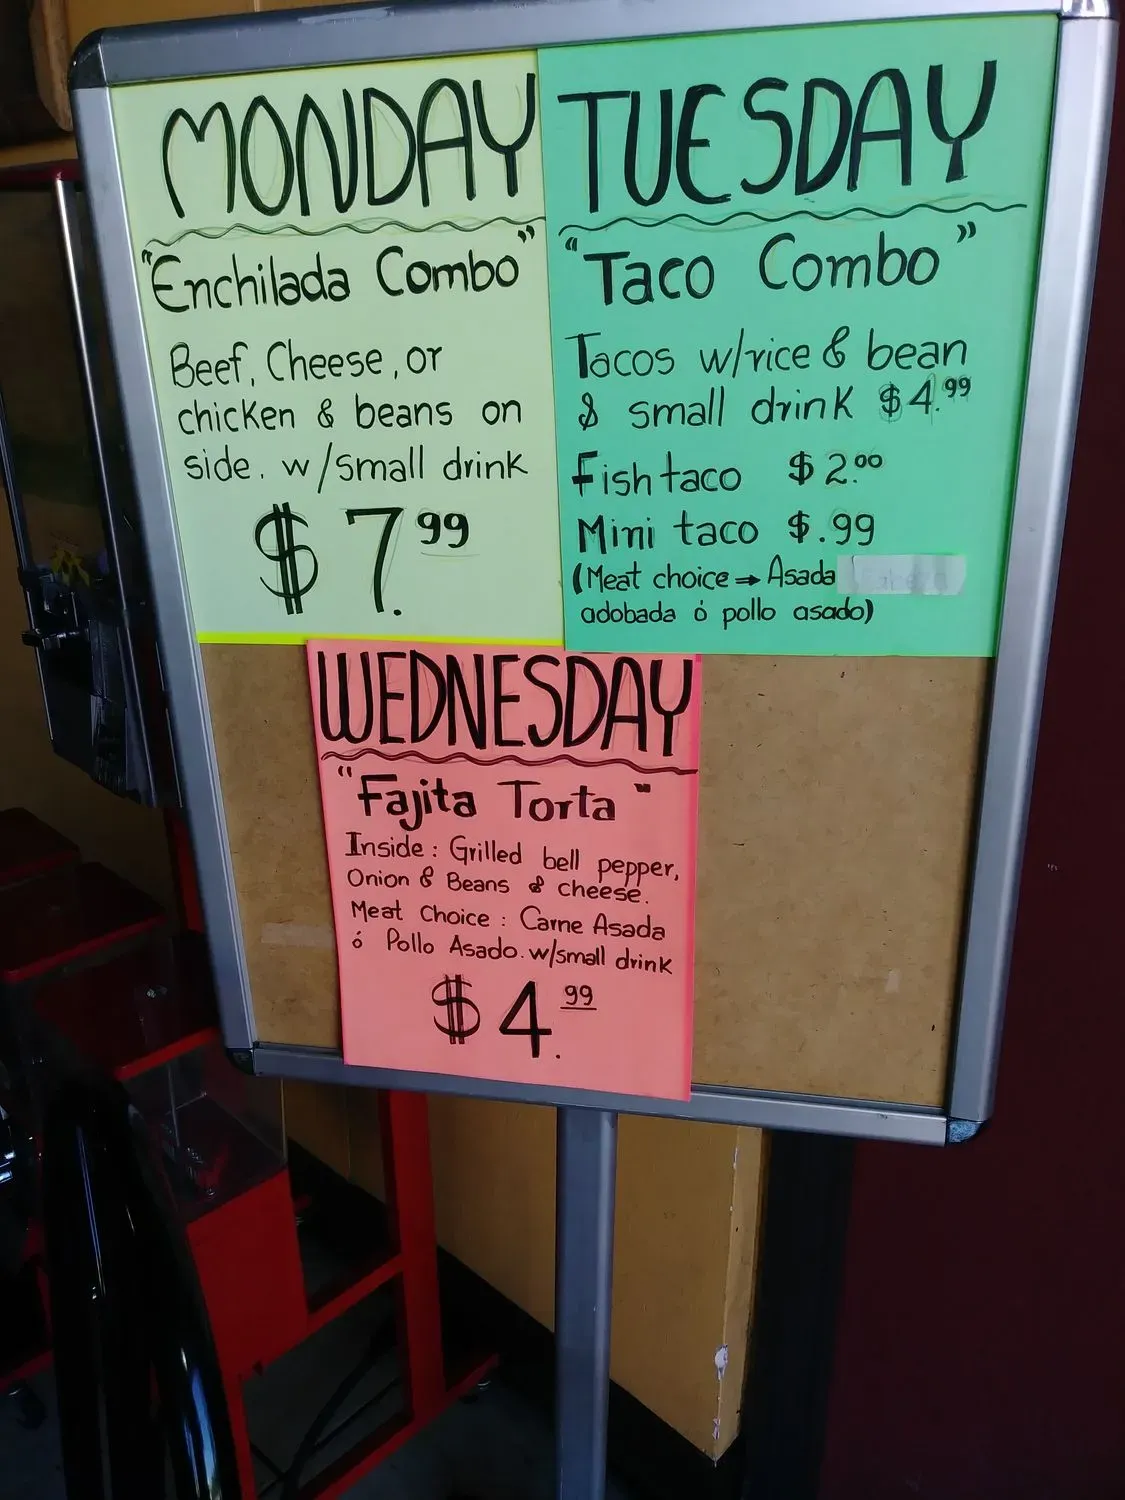 MONDAY
"Enchilada Combo"
Beef, Cheese, or
chicken & beans on
side. w/small drink
$7.99
TUESDAY
"Taco Combo"
Tacos w/rice & bean
& small drink $4.99
Fish taco $2.00
Mini taco $.99
(Meat choice → Asada
adobada ó pollo asado)
WEDNESDAY
"Fajita Torta"
Inside: Grilled bell pepper,
Onion & Beans & cheese.
Meat Choice: Carne Asada
ó Pollo Asado. w/small drink
$4.99